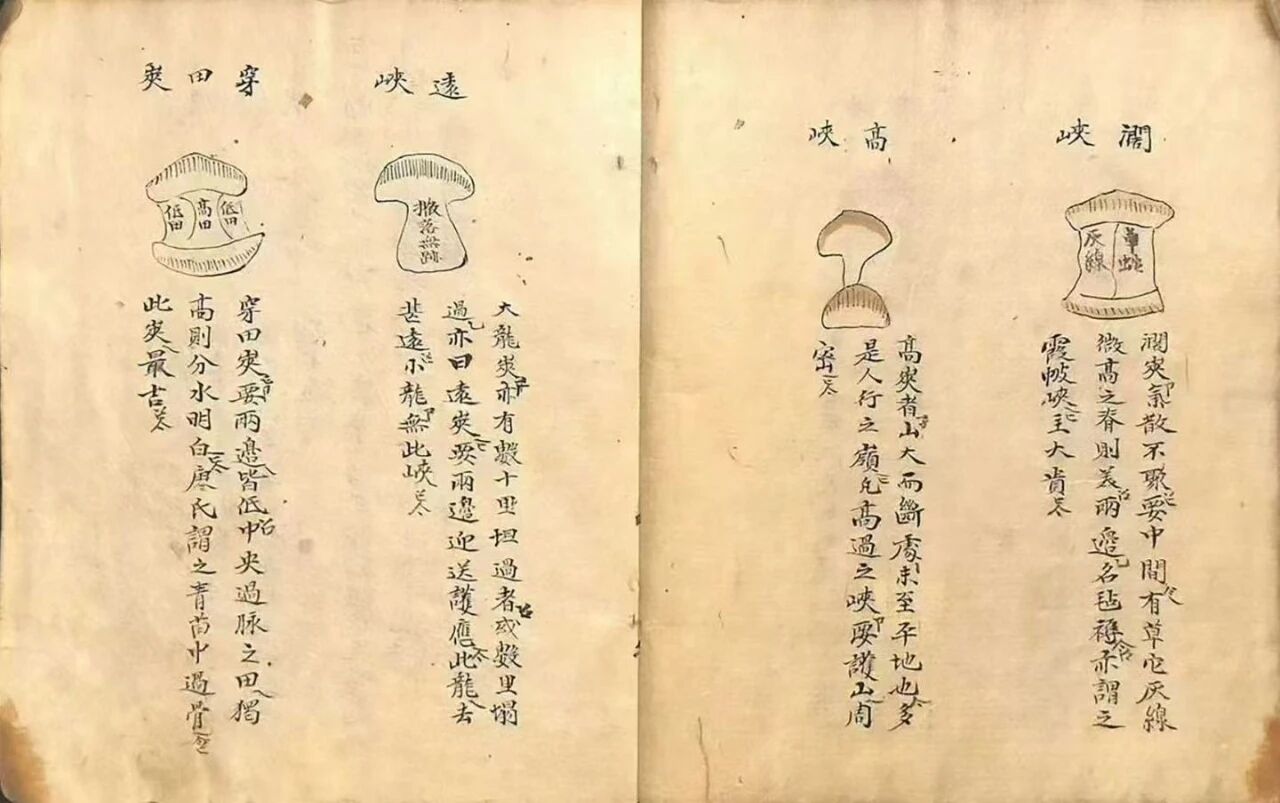 濶峽
草蛇
灰線
濶夾氣散不聚要中間有草它灰線
微高之脊則美兩邉名毡褥亦謂之
霞帔峽主大貴
高峽
高夾者山大而斷處未至平地也多
是人行之嶺凡高過之峽要護山周
密
遠峽
撒落無跡
大龍夾亦有數十里坦過者或數里塌
過亦曰遠夾要兩邉迎送護應此龍去
甚遠小龍無此峽
穿田夾
低田
高田
低田
穿田夾要兩邉皆低中央過脉之田獨
高則分水明白廖氏謂之青苗中過骨
此夾最吉